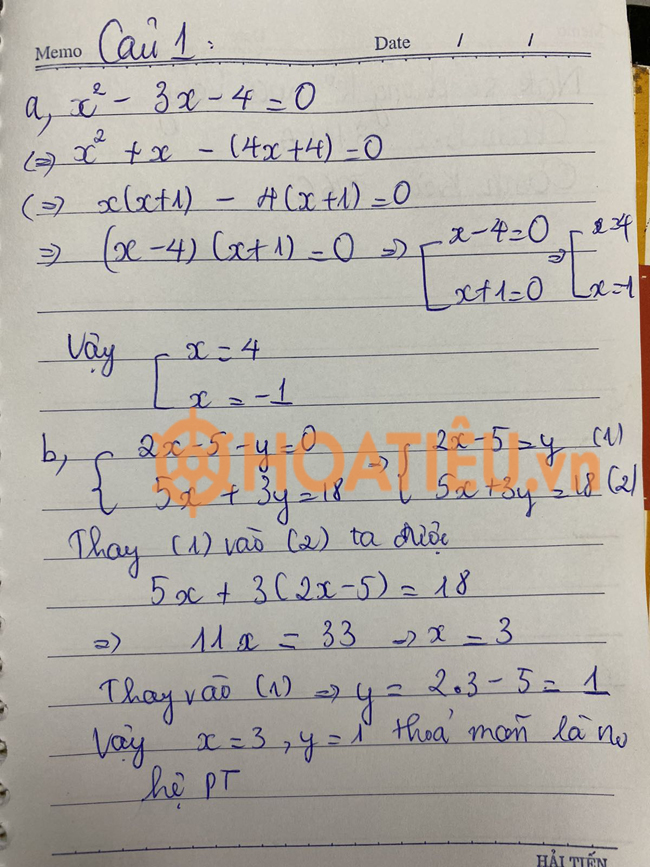 Memo Câu 1: Date / /
a, x² - 3x - 4 = 0
(=) x² + x - (4x+4) = 0
(=) x(x+1) - 4(x+1) = 0
=) (x-4)(x+1) = 0 =) [ x-4=0 =) [ x=4
x+1=0 x=-1
Vậy [ x = 4
x = -1
b, { 2x-5-y=0 =) { 2x-5=y (1)
5x + 3y = 18 5x+3y=18 (2)
HOATIÊU.vn
Thay (1) vào (2) ta được
5x + 3(2x-5) = 18
=) 11x = 33 → x = 3
Thay vào (1) =) y = 2.3 - 5 = 1
Vậy x = 3, y = 1 thoả mãn là no
hệ PT
HẢI TIẾN